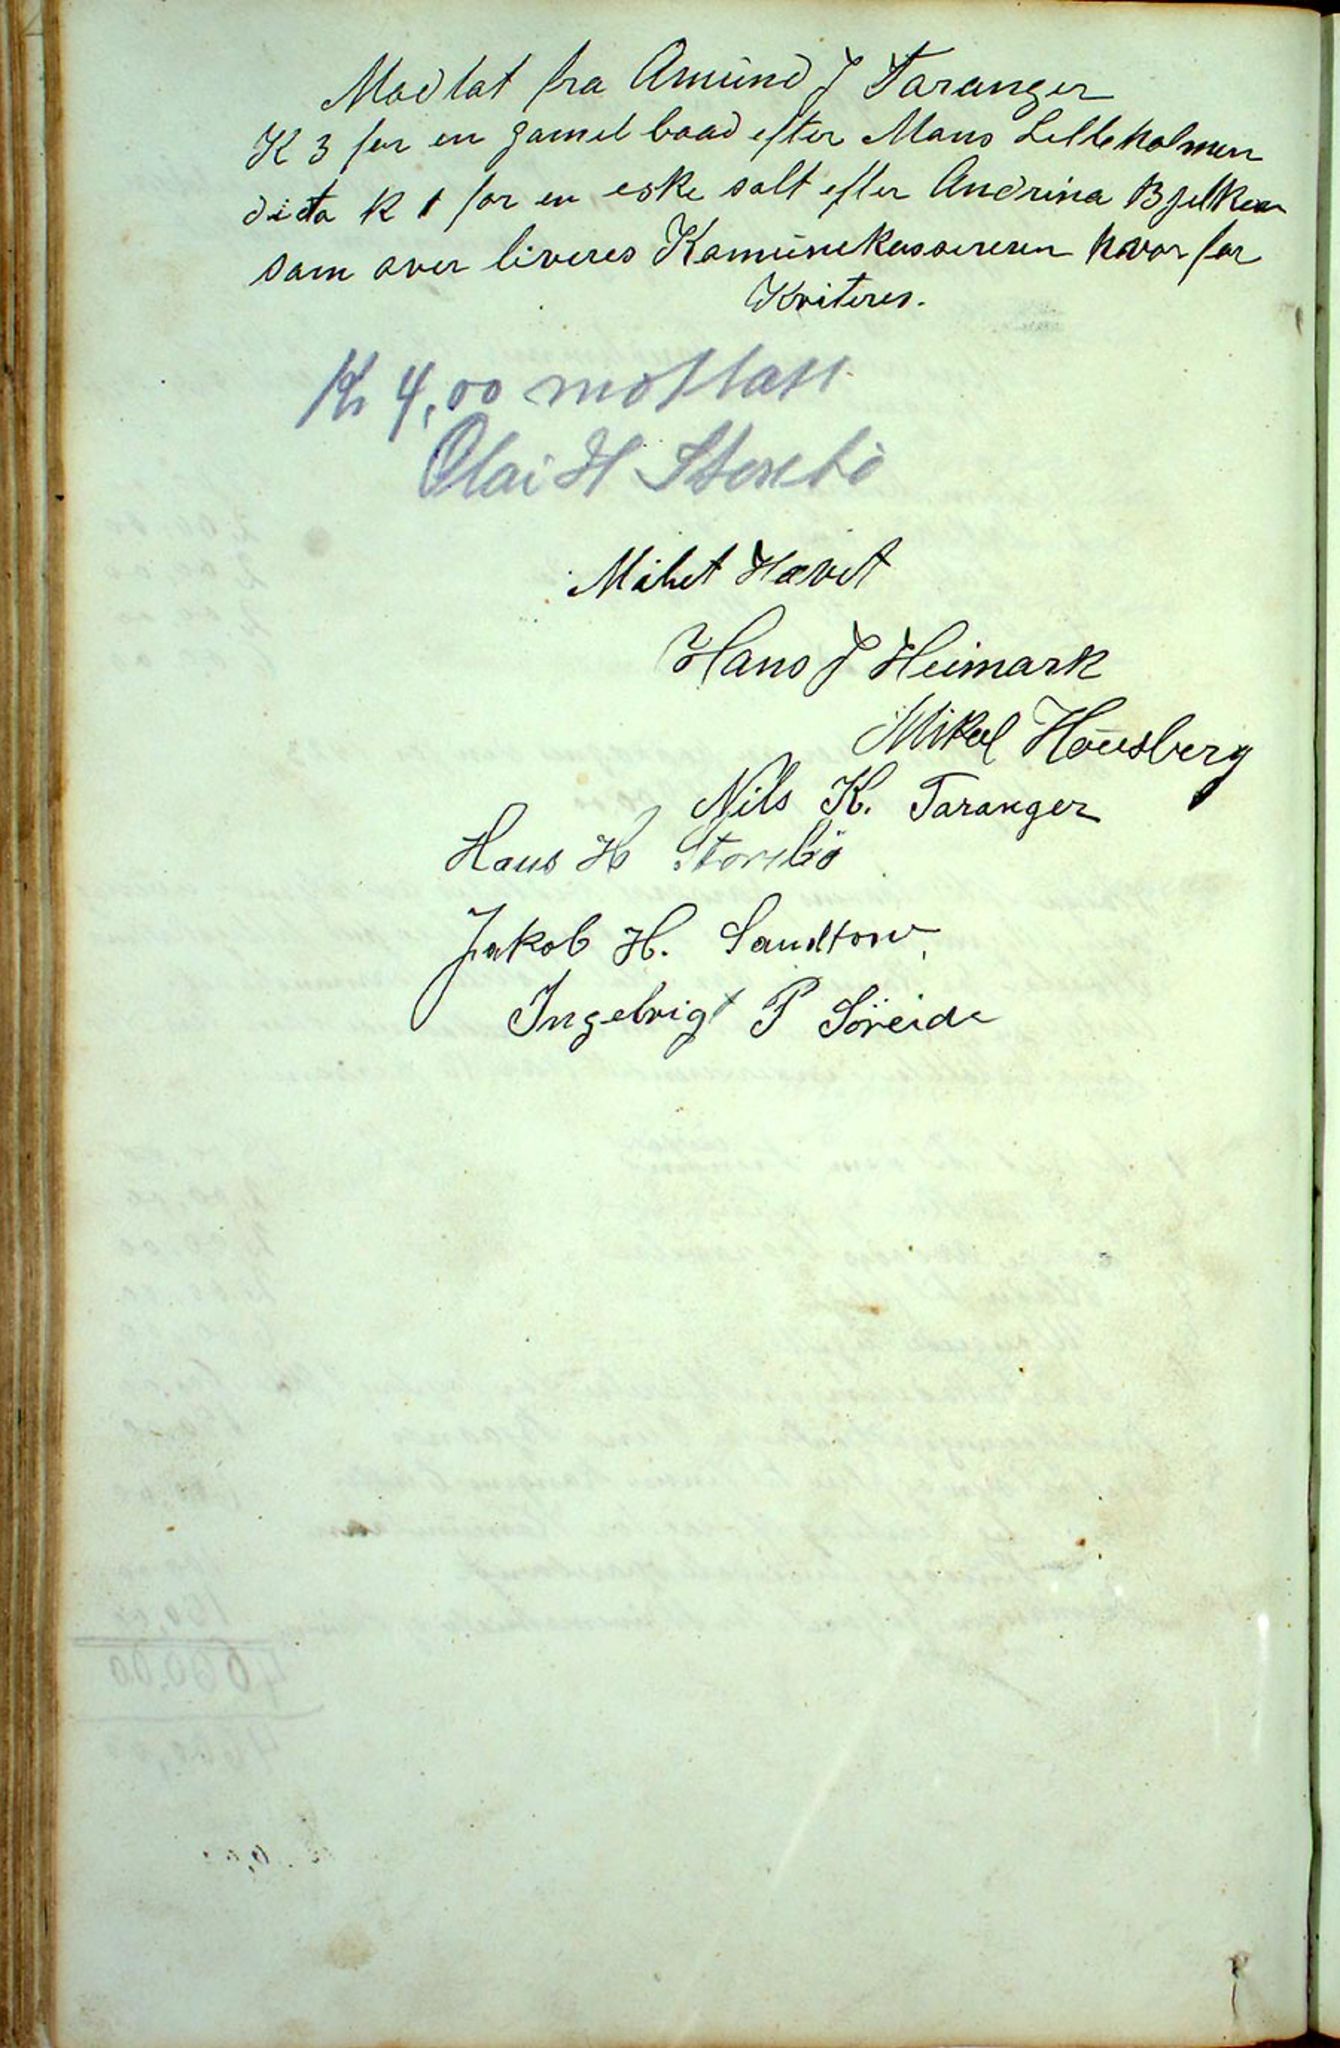 Modtat fra Amund J Taranger
K 3 for en gamel baad efter Mans Lilleholmen
dito k 1 for en eske salt efter Andrina Bjelken
som over liveres Komunekassereren hvor for
Kviteres.
Kr 4,00 mottatt
Olai H Storebö
Mötet Hævet
Hans J Heimark
Mikal Housberg
Nils K. Taranger
Hans H Storebö
Jakob H. Sandtorv
Ingebrigt P Söreide